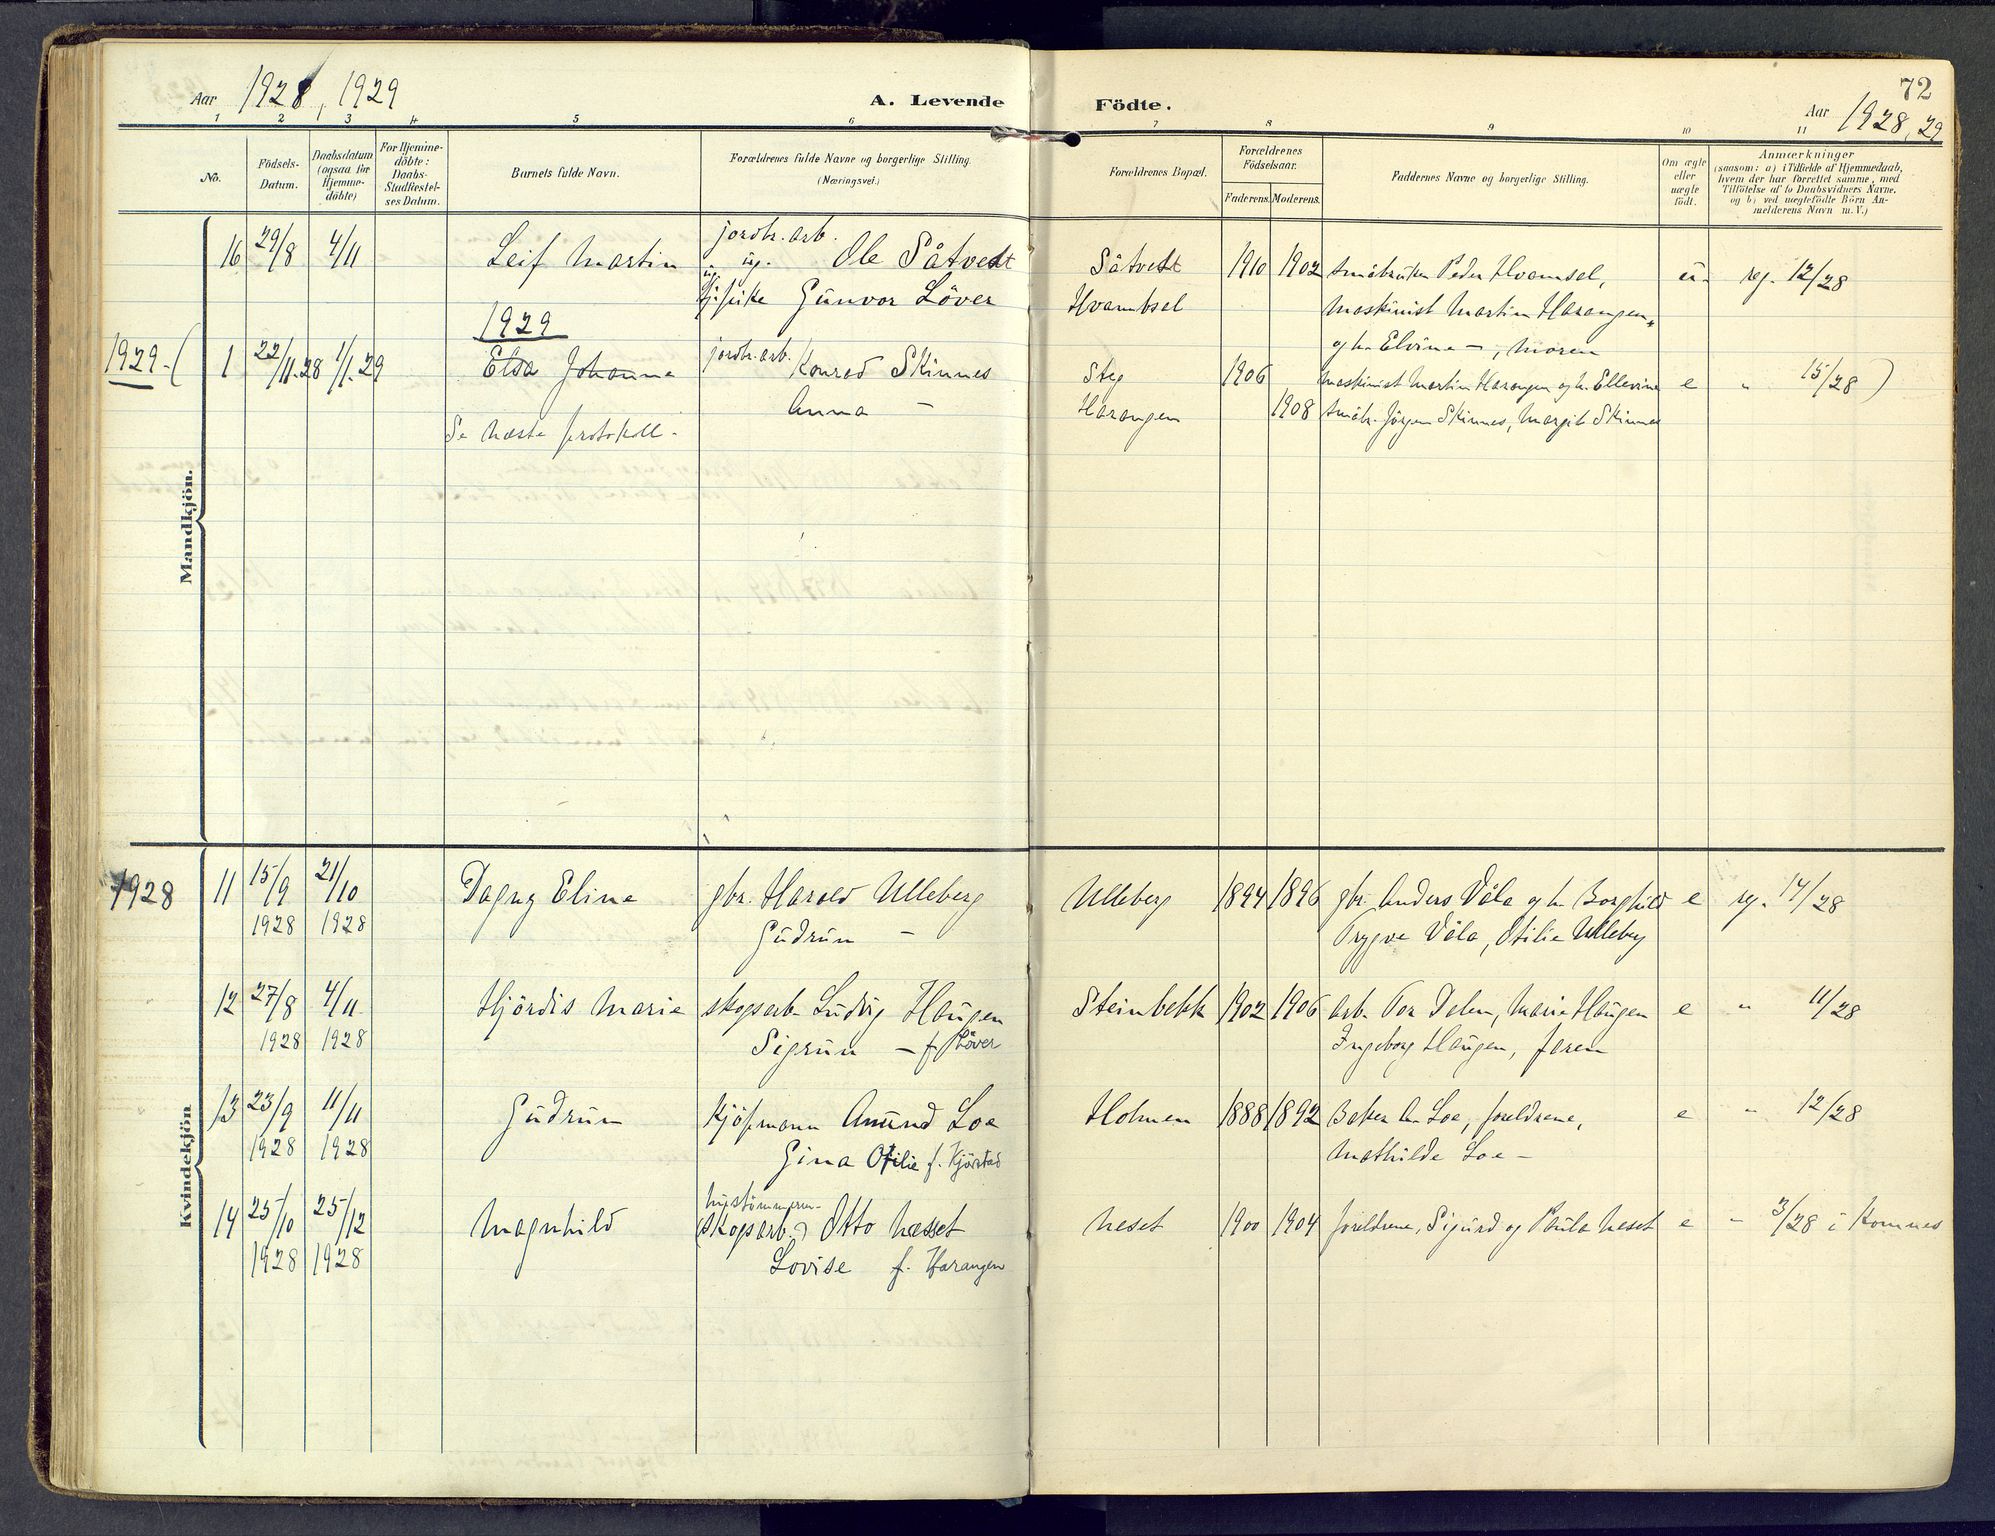 Aar 1928, 1929
A. Levende
Födte.
72
Aar 1928, 29
1 2 3 4 5 6 7 8 9 10 11
No.
Födsels-
Datum.
Daabsdatum
(ogsaa for
Hjemme-
döbte)
For Hjemme-
döbte:
Daabs-
Stadfæstel-
ses Datum.
Barnets fulde Navn.
Forældrenes fulde Navne og borgerlige Stilling.
(Næringsvei.)
Forældrenes Bopæl.
Forældrenes
Födselsaar.
Faderens. Moderens.
Faddernes Navne og borgerlige Stilling.
Om ægte
eller
uægte
födt.
Anmærkninger
(saasom: a) i Tilfælde af Hjemmedaab,
hvem der har forrettet samme, med
Tilföielse af to Daabsvidners Navne.
og b) ved uægtefödte Börn An-
melderens Navn m. V.)
Mandkjön.
jordbr. arb.
16 29/8 4/11 Leif Martin ug. Ole Såtvedt Såtvedt 1910 1902 småbruker Peder Hvambsel, u. reg. 12/28
ug. tj.pike Gunvor Löver Hvambsel maskinist Martin Harangen,
1929
og h. Elvine —, moren
1929. ( 1 22/11.28 1/1.29 Elsa Johanne jordbr. arb. Konrad Skinnes Steg 1906 maskinist Martin Harangen og h. Ellevine e " 15/28 )
Anna — Harangen 1908 småbr. Jörgen Skinnes, Margit Skinnes
Se næste protokoll.
Kvindekjön
1928 11 15/9 21/10 Dagny Eline gbr. Harald Ulleberg Ulleberg 1894 1896 gbr. Anders Våla og h. Borghild e reg. 14/28
1928 1928 Gudrun — Trygve Våla, Otilie Ulleberg
12 27/8 4/11 Hjördis Marie skogsarb. Ludvig Haugen Steinbekk 1902 1906 arb. Tor Dalen, Marie Haugen e " 11/28
1928 1928 Sigrun — f. Löver Ingeborg Haugen, faren
13 23/9 11/11 Gudrun Kjöpmann Amund Loe Holmen 1888 1892 Baker A. Loe, foreldrene, e " 12/28
1928 1928 Gina Otilie f. Kjörstad Mathilde Loe —
14 25/10 25/12 Magnhild (skogsarb.) Otto Næsset Neset 1900 1904 foreldrene, Sigurd og Paula Neset e " 3/28 i Komnes
1928 1928 Lovise f. Harangen